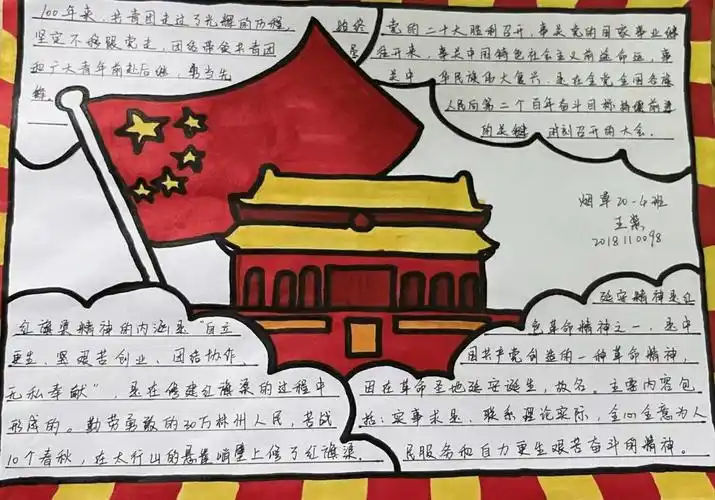 100年来，共青团走过了光辉的历程，始终
坚定不移跟党走，团结带领共青团
和广大青年前赴后继，勇当先
锋。
党的二十大胜利召开，事关党的国家事业继
往开来，事关中国特色社会主义前途命运，事
关中华民族伟大复兴，是在全党全国各族
人民向第二个百年奋斗目标 前进
的关键时刻召开的大会。
烟草20-4班
王
2018110098
红旗渠精神的内涵是"自立
更生、坚艰苦创业、团结协作、
无私奉献"，是在修建红旗渠的过程中
形成的。勤劳勇敢的30万林州人民，苦战
10个春秋，在太行山的悬崖峭壁上修了红旗渠。
延安精神是红
色革命精神之一，是中
国共产党创造的一种革命精神，
因在革命圣地延安诞生，故名。主要内容包
括：实事求是、联系理论实际，全心全意为人
民服务和自力更生艰苦奋斗的精神。